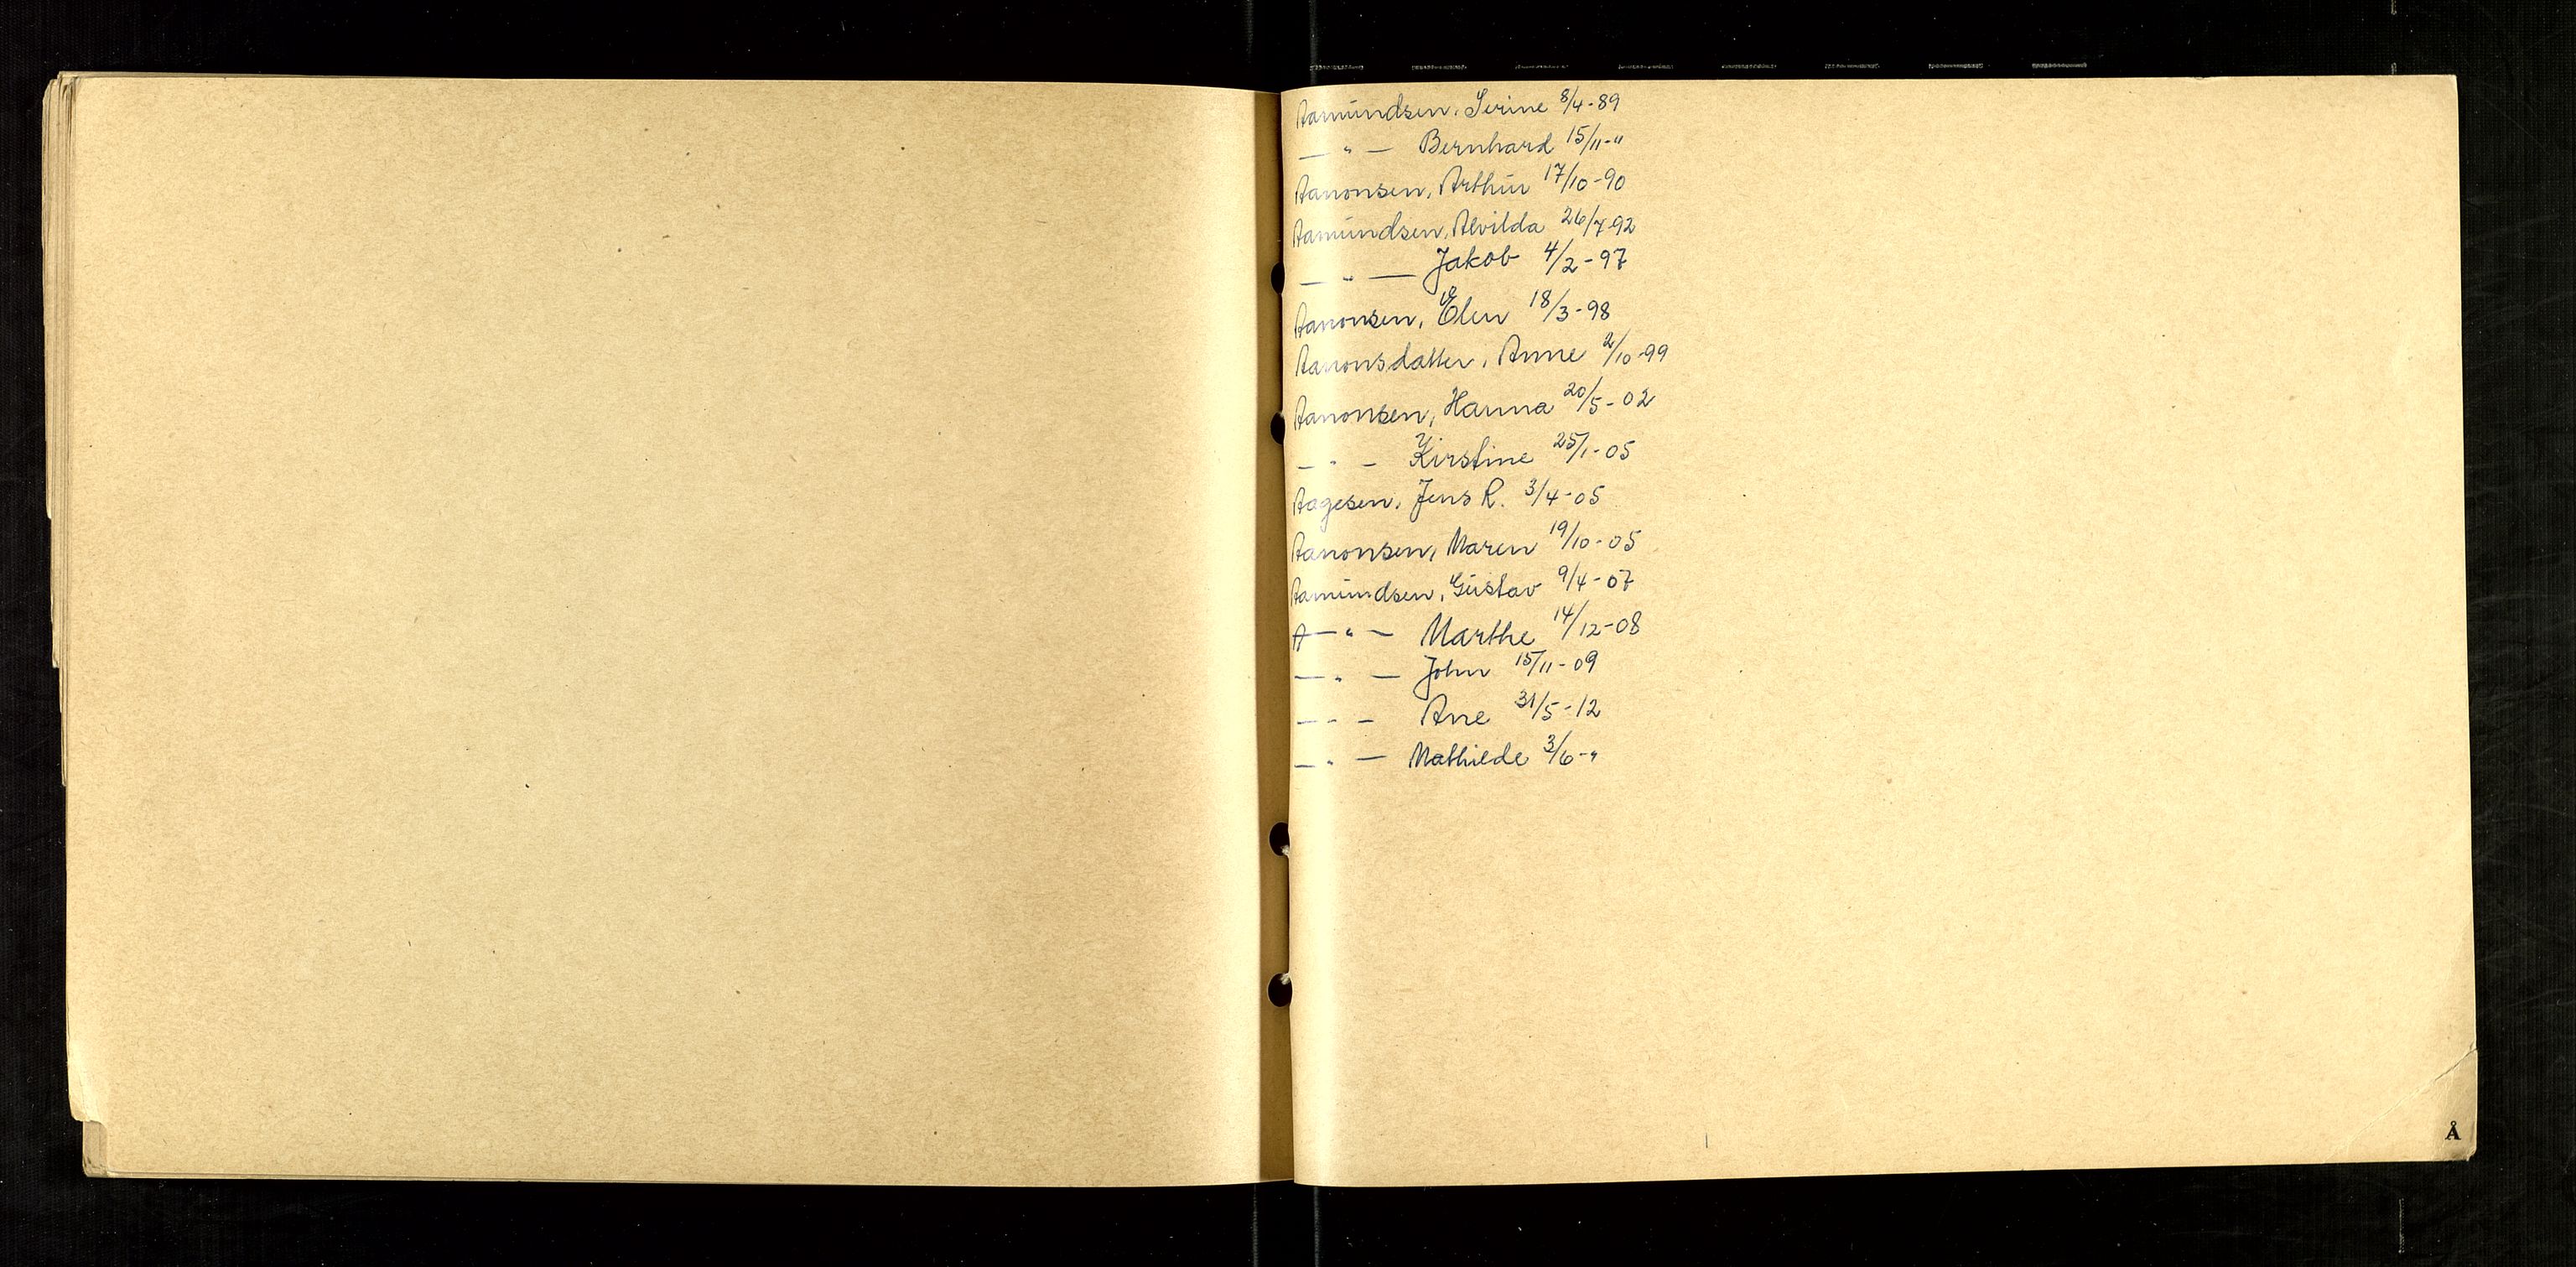 Aamundsen, Serine 8/4-89
— " — Bernhard 15/11-"
Aanonsen, Arthur 17/10-90
Aamundsen, Alvilda 26/7-92
— " — Jakob 4/2-97
Aanonsen, Elen 18/3-98
Aanonsdatter, Anne 2/10-99
Aanonsen, Hanna 20/5-02
— " — Kirstine 25/1-05
Aagesen, Jens R. 3/4-05
Aanonsen, Maren 19/10-05
Aamundsen, Gustav 9/4-07
A — " — Marthe 14/12-08
— " — John 15/11-09
— " — Ane 31/5-12
— " — Mathilde 3/6-"
Å